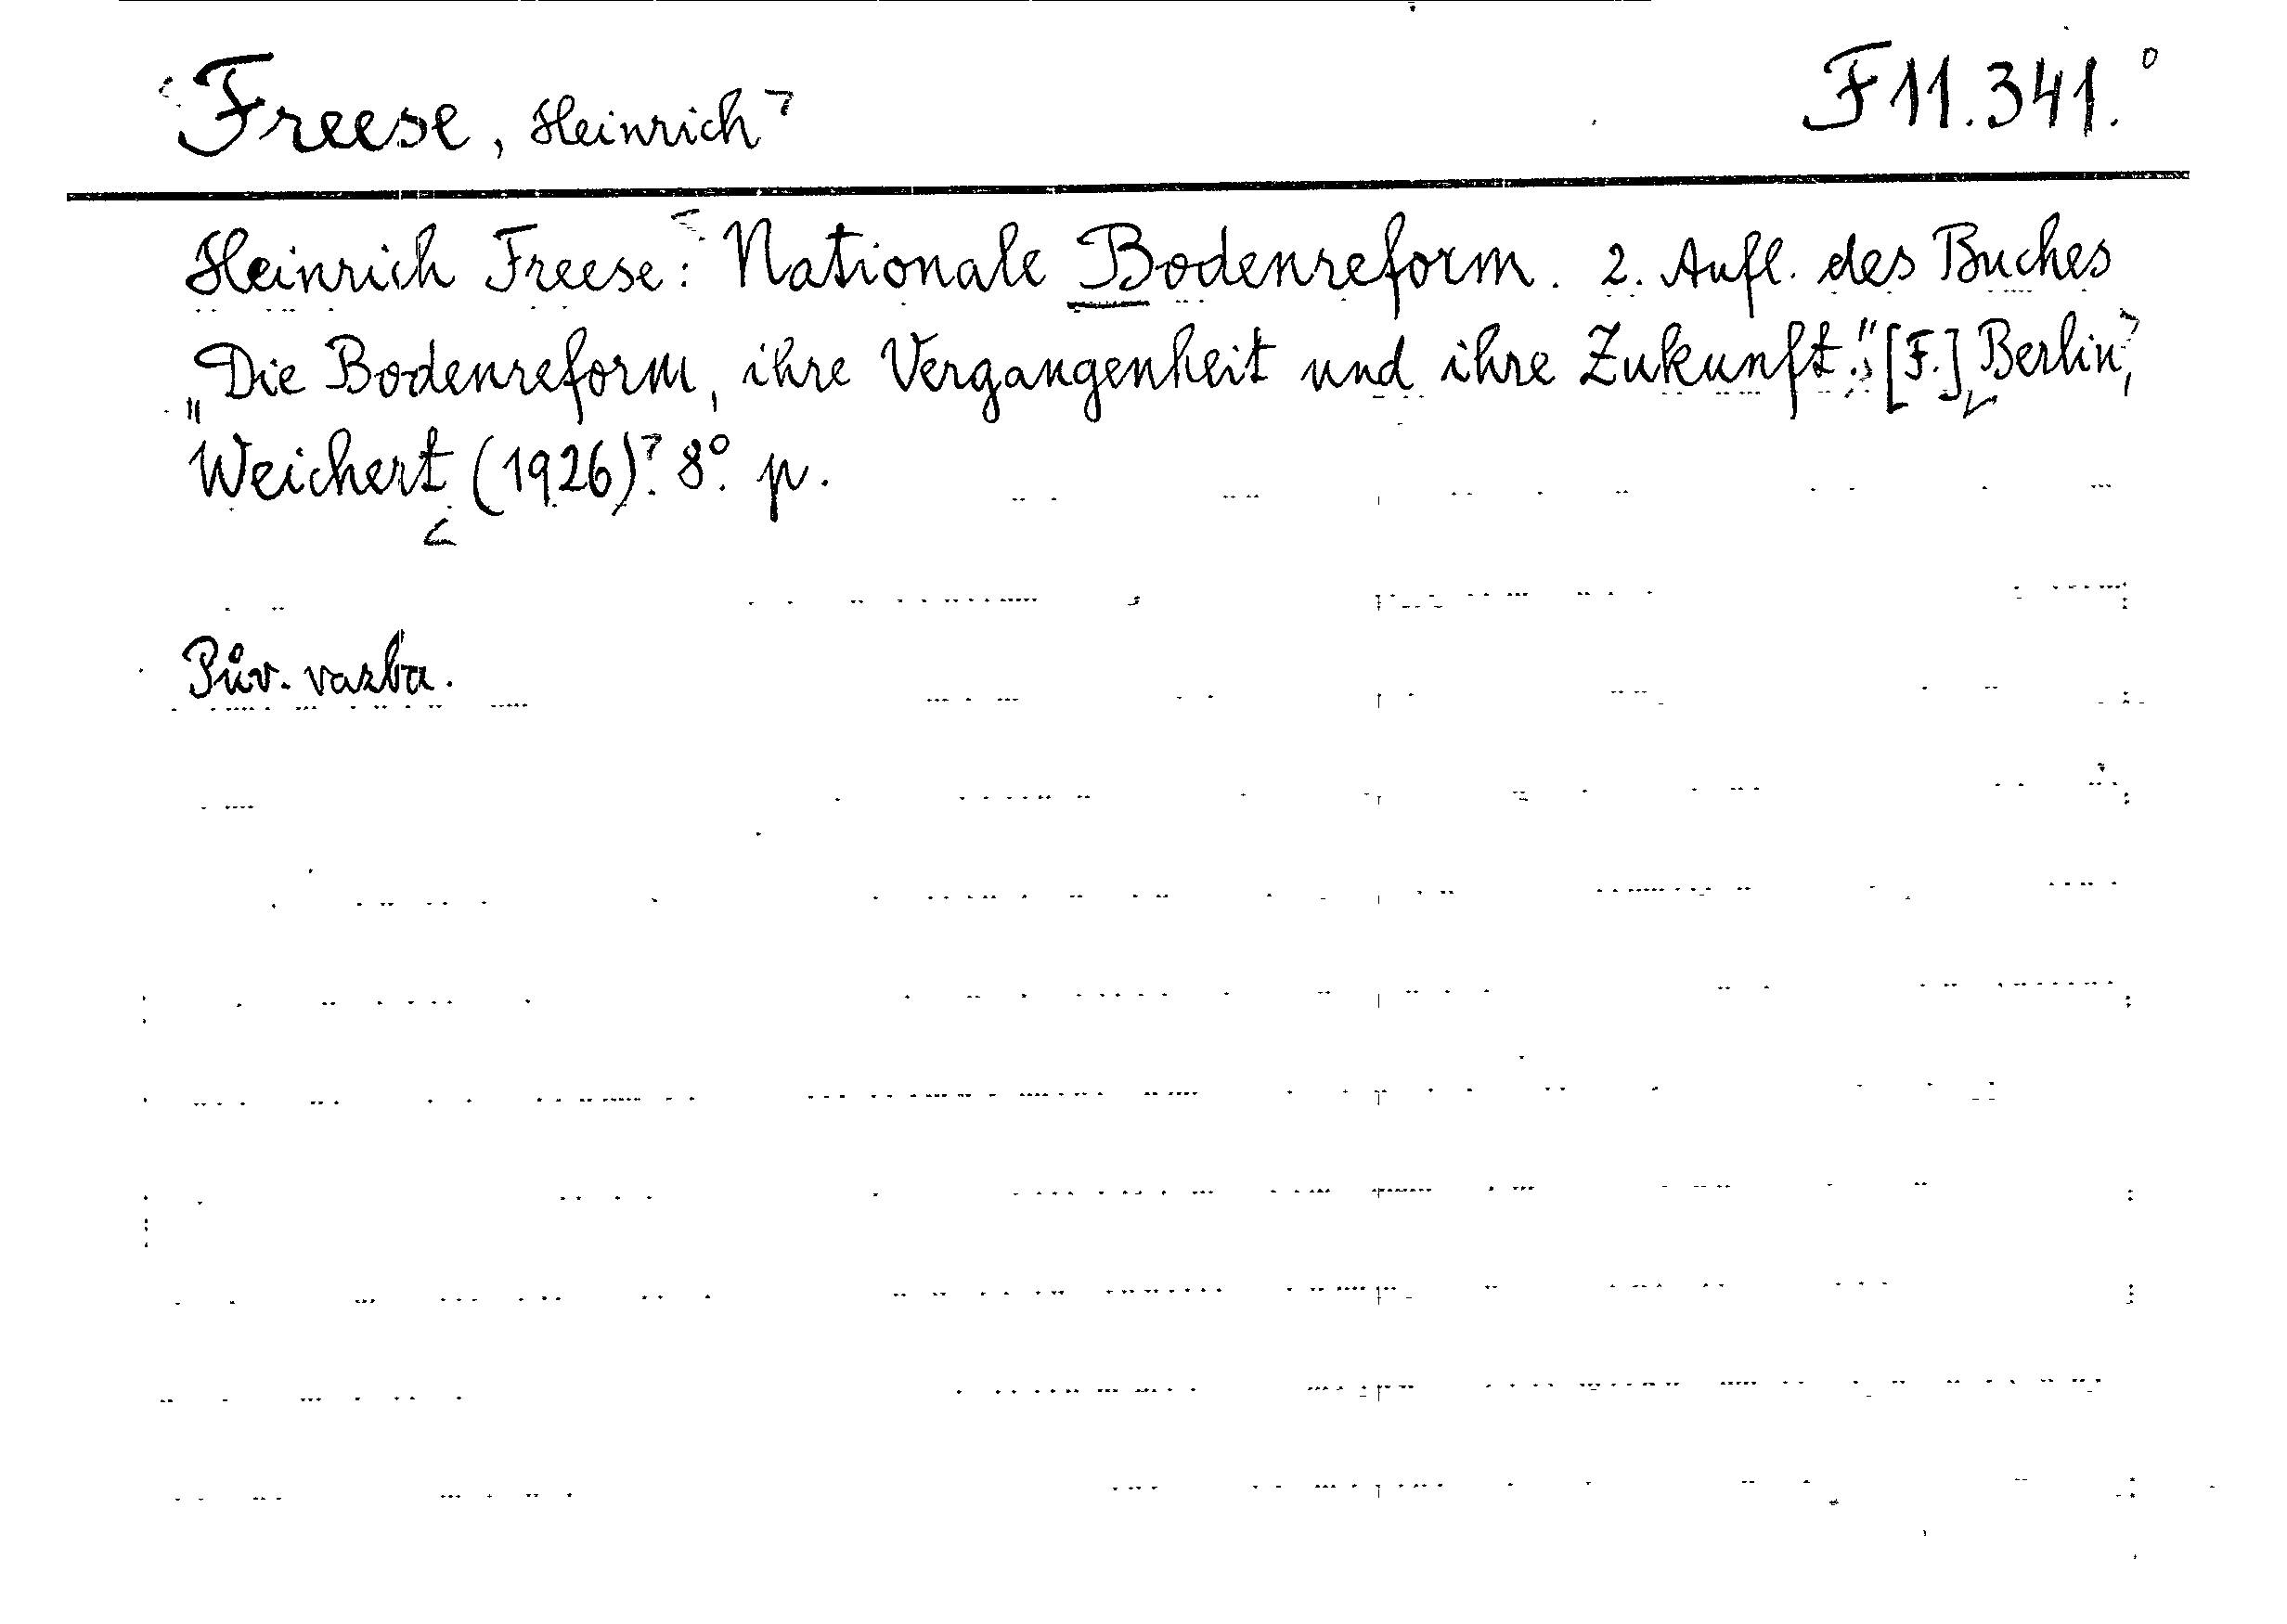 Freese, Heinrich F 11.341.°
Heinrich Freese: Nationale Bodenreform. 2. Aufl. des Buches
„Die Bodenreform, ihre Vergangenheit und ihre Zukunft." [F.] Berlin,
Weichert (1926). 8°. p.
Pův. vazba.